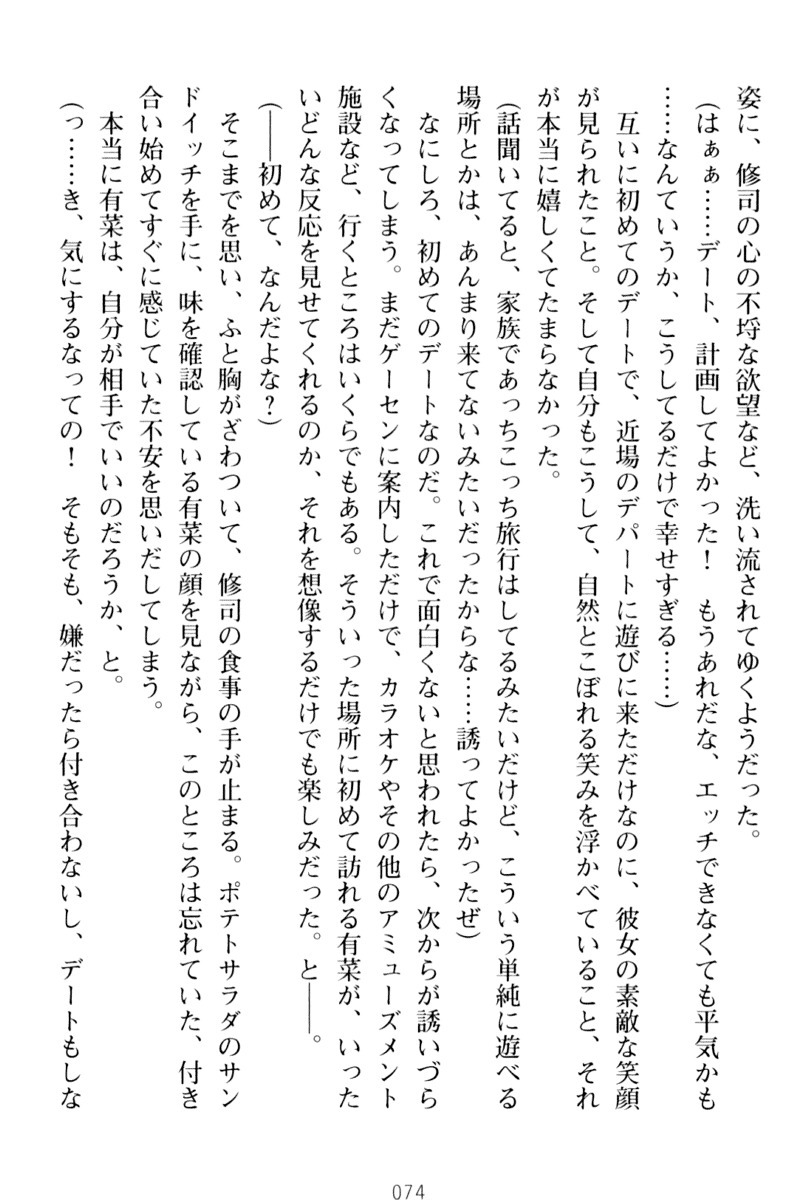 姿に、修司の心の不埒な欲望など、洗い流されてゆくようだった。
(はぁぁ……デート、計画してよかった！　もうあれだな、エッチできなくても平気かも
……なんていうか、こうしてるだけで幸せすぎる……)
　互いに初めてのデートで、近場のデパートに遊びに来ただけなのに、彼女の素敵な笑顔
が見られたこと。そして自分もこうして、自然とこぼれる笑みを浮かべていること、それ
が本当に嬉しくてたまらなかった。
(話聞いてると、家族であっちこっち旅行はしてるみたいだけど、こういう単純に遊べる
場所とかは、あんまり来てないみたいだったからな……誘ってよかったぜ)
　なにしろ、初めてのデートなのだ。これで面白くないと思われたら、次からが誘いづら
くなってしまう。まだゲーセンに案内しただけで、カラオケやその他のアミューズメント
施設など、行くところはいくらでもある。そういった場所に初めて訪れる有菜が、いった
いどんな反応を見せてくれるのか、それを想像するだけでも楽しみだった。と――。
(――初めて、なんだよな？)
　そこまでを思い、ふと胸がざわついて、修司の食事の手が止まる。ポテトサラダのサン
ドイッチを手に、味を確認している有菜の顔を見ながら、このところは忘れていた、付き
合い始めてすぐに感じていた不安を思いだしてしまう。
　本当に有菜は、自分が相手でいいのだろうか、と。
(っ……き、気にするなっての！　そもそも、嫌だったら付き合わないし、デートもしな
074